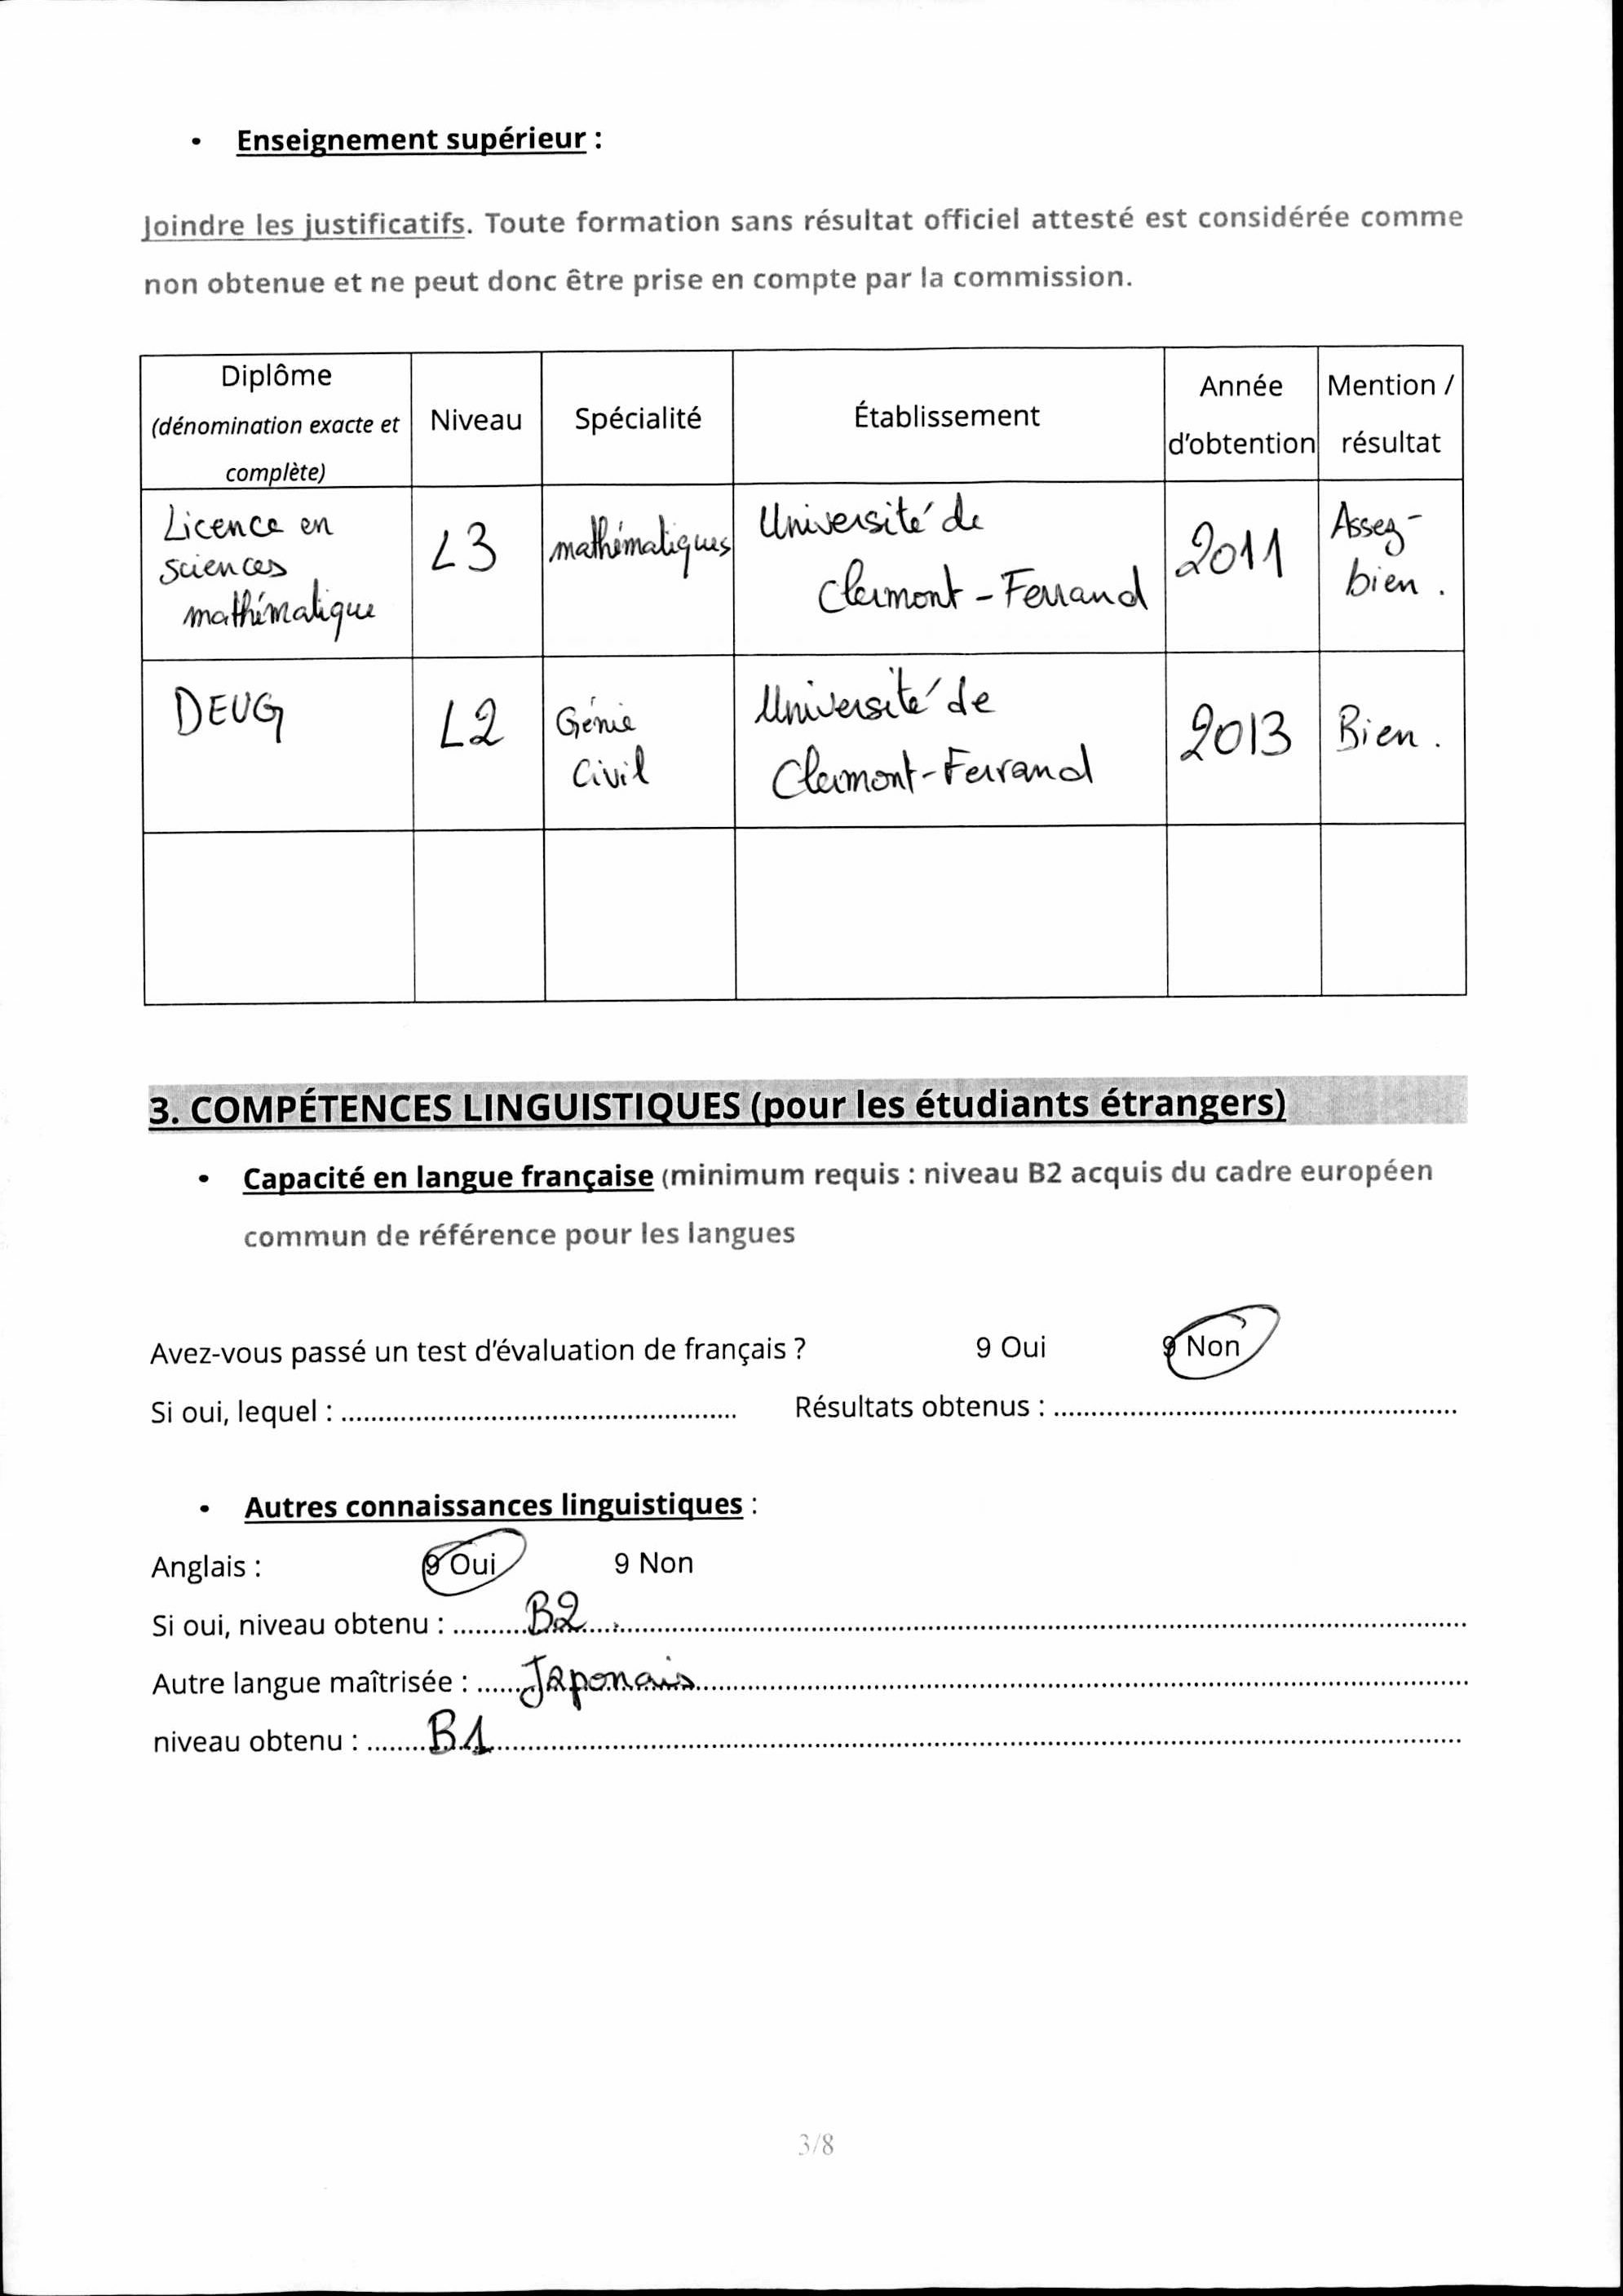 • Enseignement supérieur :
Joindre les justificatifs. Toute formation sans résultat officiel attesté est considérée comme
non obtenue et ne peut donc être prise en compte par la commission.
Diplôme
(dénomination exacte et
complète)
Niveau
Spécialité
Établissement
Année
d'obtention
Mention /
résultat
Licence en
sciences
mathématique
L3
mathématiques
Université de
Clermont - Ferrand
2011
Assez-
bien .
DEUG
L2
Génie
Civil
Université de
Clermont-Ferrand
2013
Bien .
3. COMPÉTENCES LINGUISTIQUES (pour les étudiants étrangers)
• Capacité en langue française (minimum requis : niveau B2 acquis du cadre européen
commun de référence pour les langues
Avez-vous passé un test d'évaluation de français ? 9 Oui 9 Non
Si oui, lequel : .................................................... Résultats obtenus : ......................................................
• Autres connaissances linguistiques :
Anglais : 9 Oui 9 Non
Si oui, niveau obtenu : .......... B2 ..........
Autre langue maîtrisée : ...... Japonais ..........
niveau obtenu : ........ B1 ..........
3/8